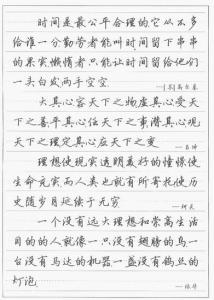 时间是最公平合理的它从不多
给谁一分勤劳者能叫时间留下串串
的果实懒惰者只能让时间留给他们
一头白发两手空空
大其心容天下之物虚其心受天
下之善平其心论天下之事潜其心观
天下之理定其心应天下之变
—吕坤
理想使现实透明美好的憧憬使
生命充实而人类也就有所寄托使历
史随岁月延续于无穷
—柯灵
一个没有远大理想和崇高生活
目的的人就像一只没有翅膀的鸟一
台没有马达的机器一盏没有钨丝的
灯泡
—张华